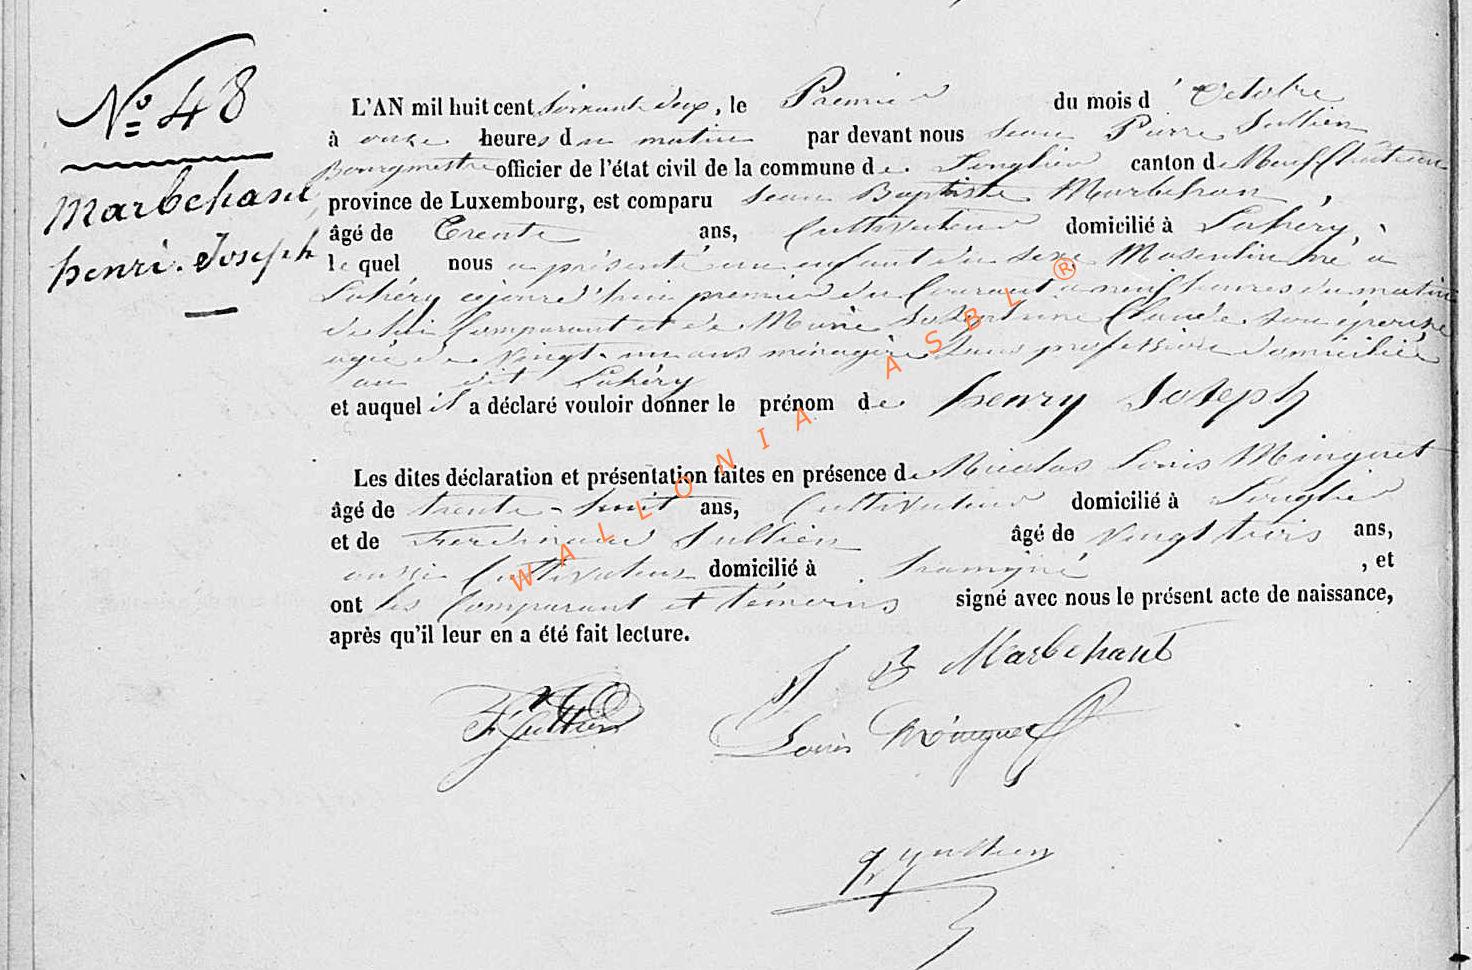 N° 48
Marbehant
henri. Joseph
L'AN mil huit cent soixante deux, le Premier du mois d'Octobre
à onze heures du matin par devant nous Jean Pierre Jullien
Bourgmestre officier de l'état civil de la commune de Longlier canton de Neufchâteau
province de Luxembourg, est comparu Jean Baptiste Marbehan,
âgé de Trente ans, Cultivateur domicilié à Lahéry,
lequel nous a présenté un enfant du sexe Masculin né à
Lahéry cejourd'hui premier du Courant à neuf heures du matin
de lui Comparant et de Marie Claude son épouse
agée de vingt-un ans ménagère sans profession domiciliée
au dit Lahéry
et auquel il a déclaré vouloir donner le prénom de henry Joseph
Les dites déclaration et présentation faites en présence de Nicolas Louis Minguet
âgé de trente-huit ans, Cultivateur domicilié à Longlier
et de Ferdinand Jullien âgé de vingt trois ans,
aussi Cultivateur domicilié à , et
ont les Comparant et témoins signé avec nous le présent acte de naissance,
après qu'il leur en a été fait lecture.
J B Marbehant
F. Jullien
Louis Minguet
Jullien
WALLONIA ASBL ®